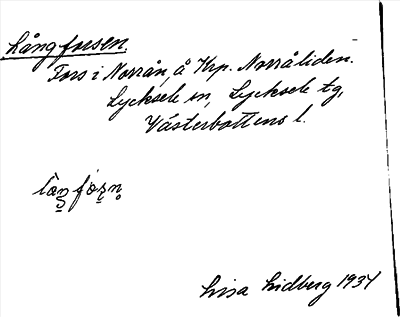 Långforsen.
Fors i Norrån, å Krp. Norråliden.
Lycksele sn, Lycksele tg,
Västerbottens l.
Lisa Lidberg 1934